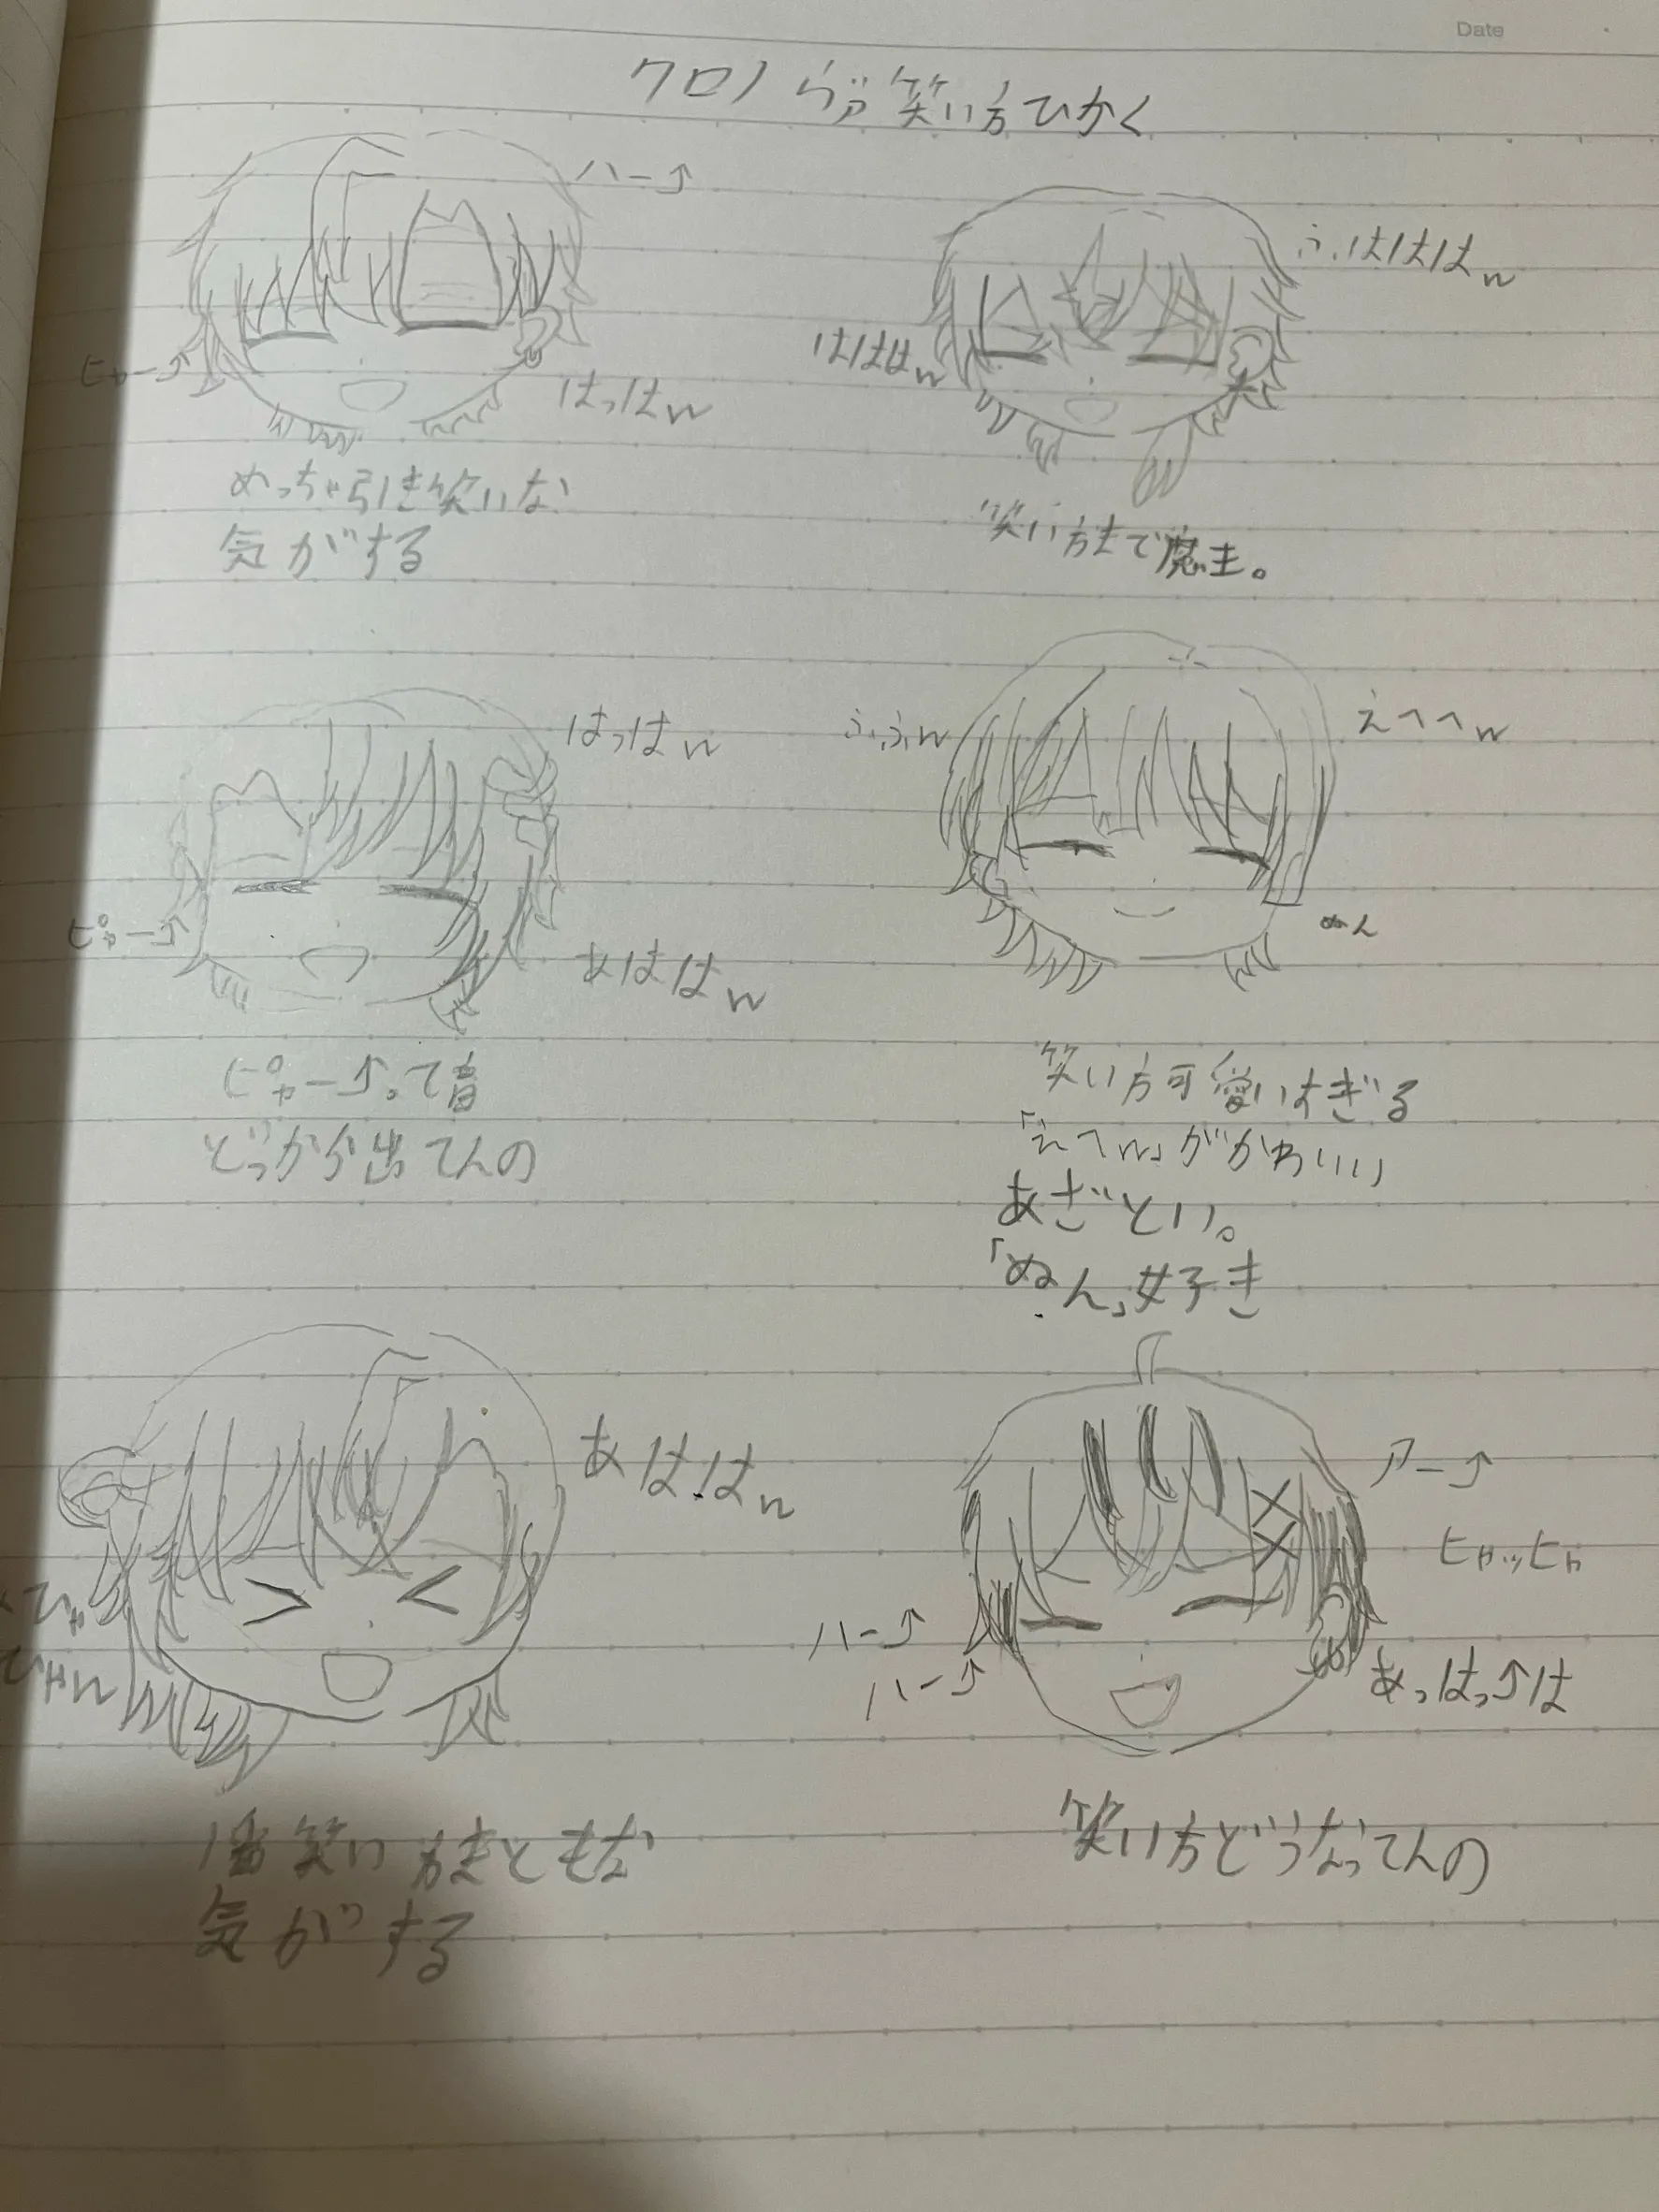 Date
クロノヴァ笑い方ひかく
ハー↑
ヒャー↑
はっはw
めっちゃ引き笑いな
気がする
ふはははw
はははw
笑い方まで魔王。
はっはw
ピャー↑
あははw
ピャー↑って音
どっから出てんの
ふふふw
えへへw
ぬん
笑い方可愛いすぎる
「えへw」がかわいい
あざとい。
「ぬん」好き
あははw
ひゃw
1番笑い方まともな
気がする
アー↑
ヒャッヒャ
ハー↑
ハー↑
あっはっ↑は
笑い方どうなってんの